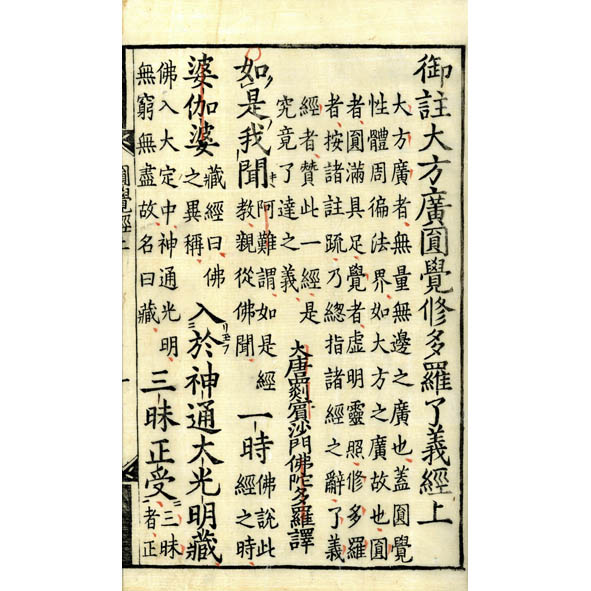 御註大方廣圓覺修多羅了義經上
大方廣者無量無邊之廣也蓋圓覺
性體周徧法界如大方之廣故也圓
者圓滿具足覺者虛明靈照修多羅
者按諸註疏乃總指諸經之辭了義
經者贊此一經是
究竟了達之義
大唐罽賓沙門佛陀多羅譯
如是我聞
阿難謂如是經
教親從佛聞
一時
佛說此
經之時
婆伽婆
藏經曰佛
之異稱
入於神通大光明藏
佛入大定中神通光明
無窮無盡故名曰藏
三昧正受
三昧
者正